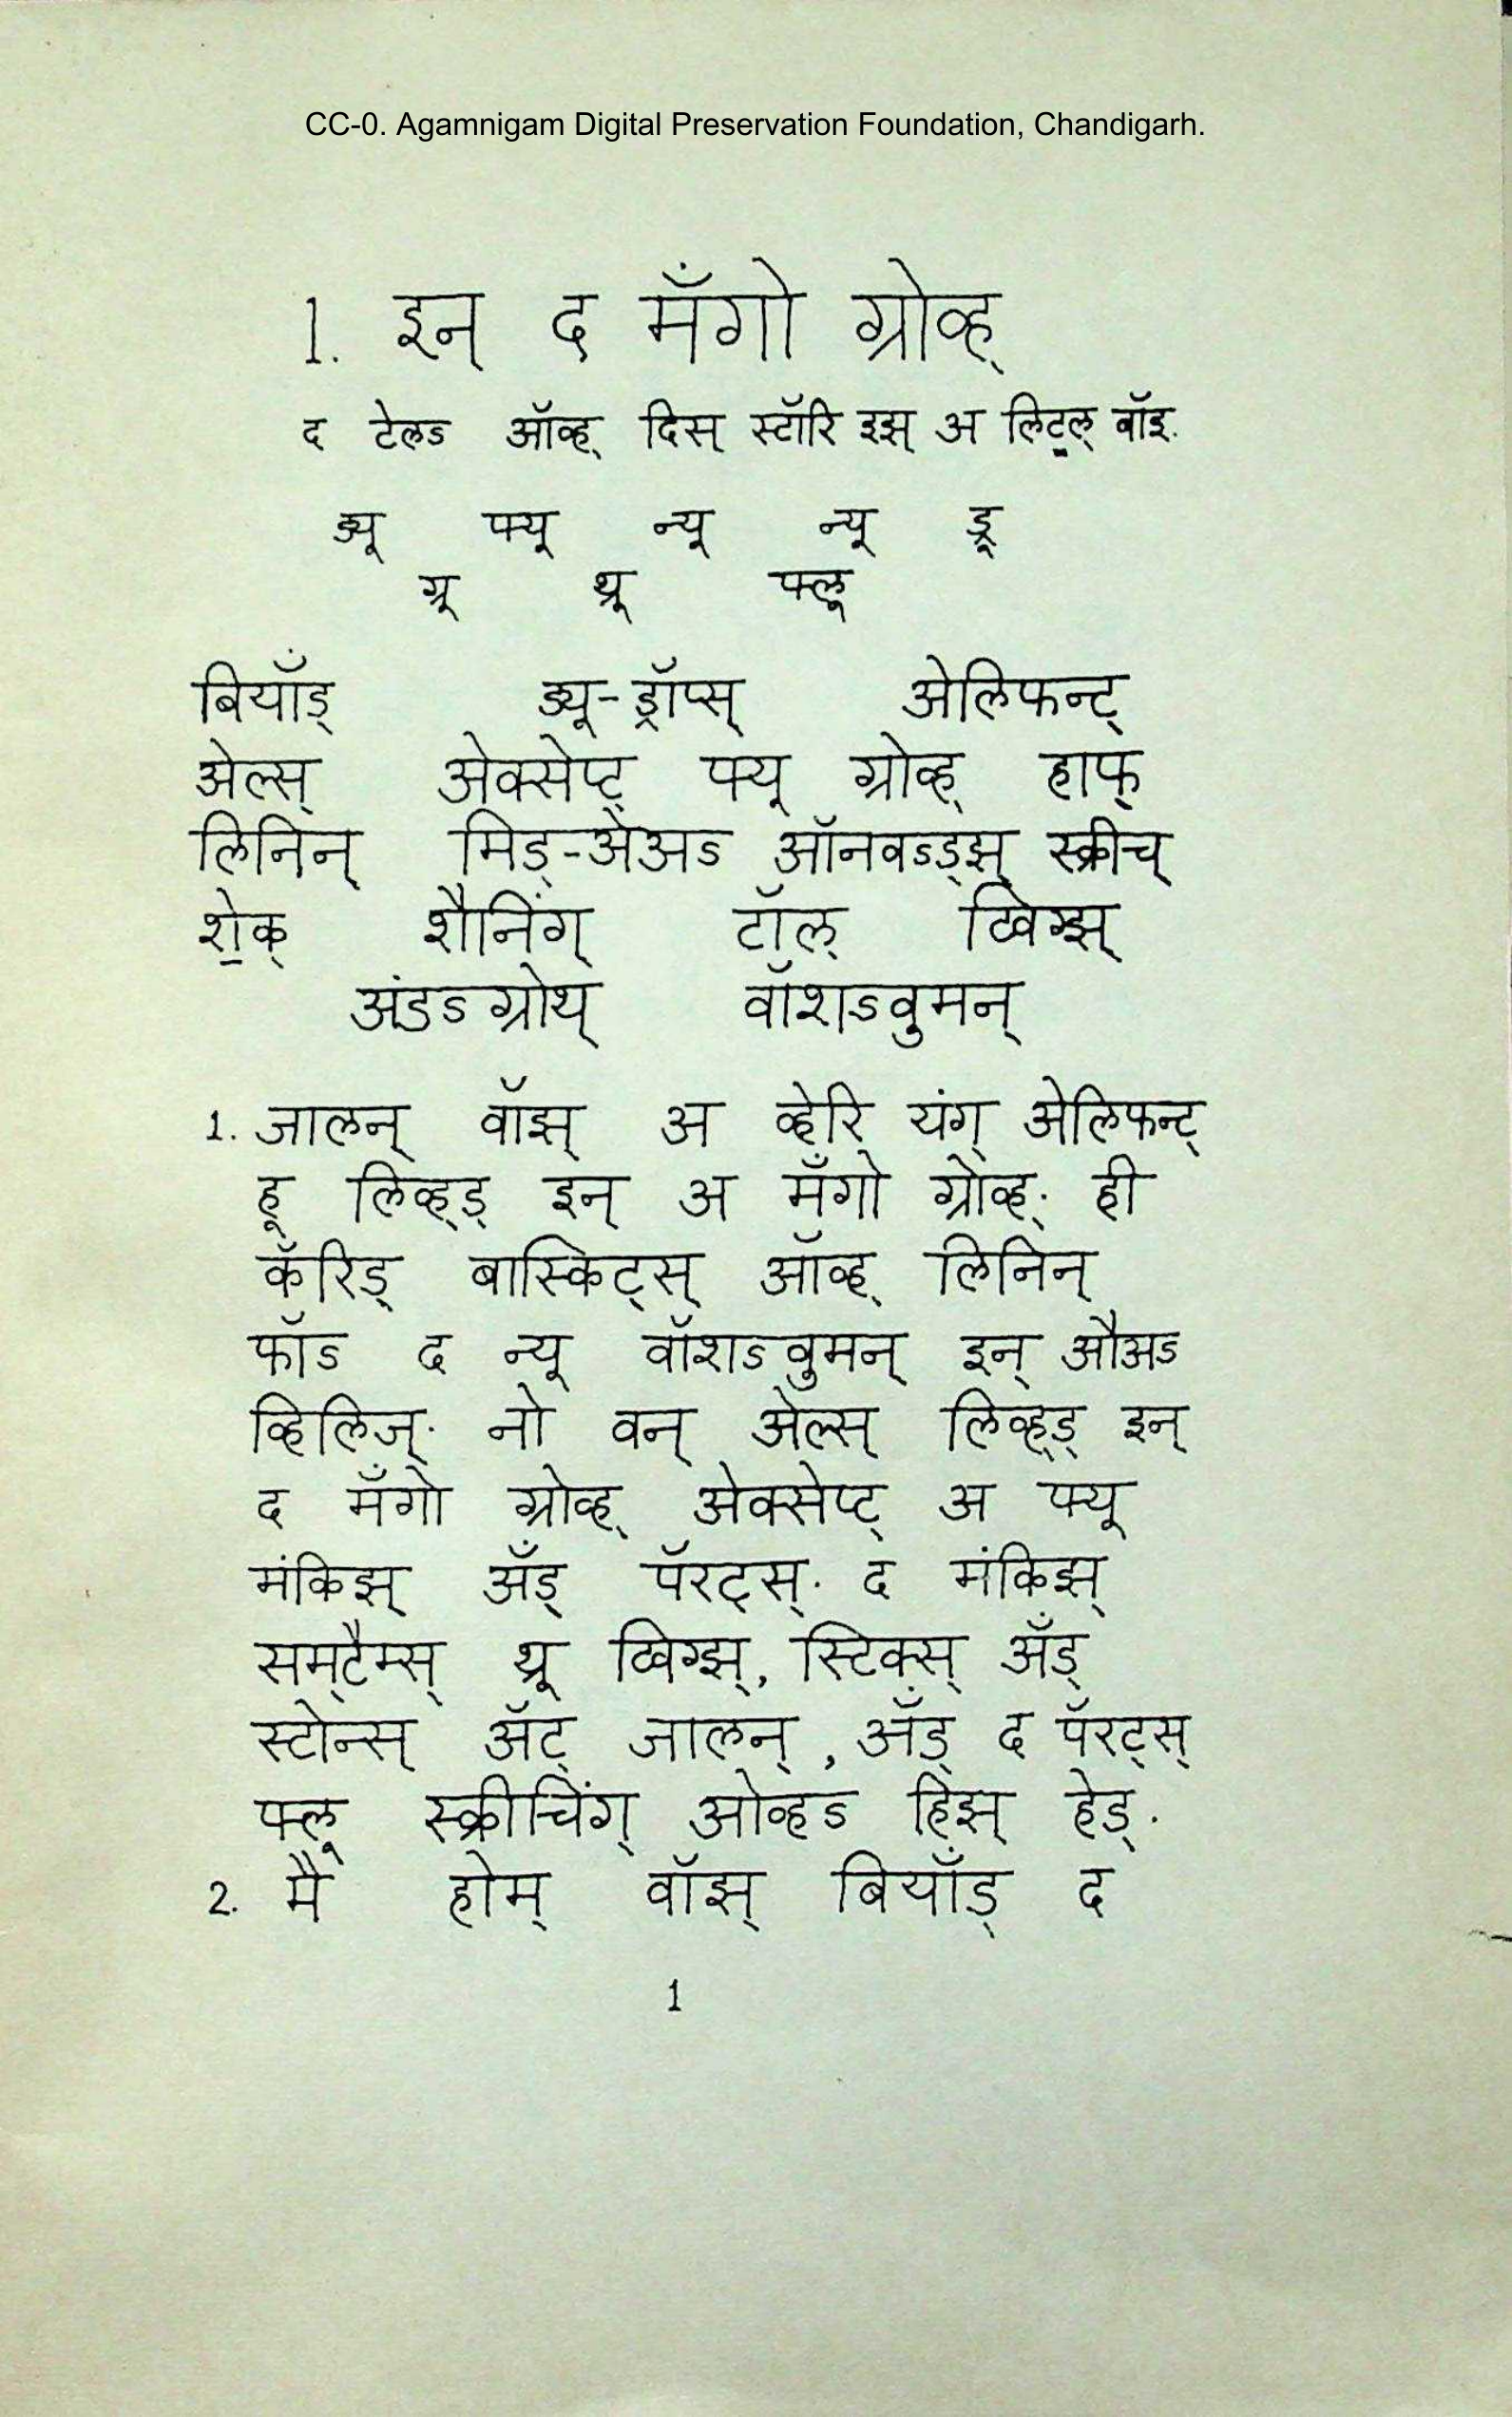 CC-0. Agamnigam Digital Preservation Foundation, Chandigarh.
1. इन् द मॅंगो ग्रोव्ह्
द टेलऽ ऑव्ह् दिस् स्टॉरि इझ् अ लिट्ल् बॉइ.
ड्यू फ्यू न्यू न्यू ड्रू
ग्रू थ्रू फ्लू
बियॉंड् ड्यू-ड्रॉप्स् अेलिफन्ट्
अेल्स् अेक्सेप्ट् फ्यू ग्रोव्ह् हाफ्
लिनिन् मिड्-अेअऽ ऑनवऽड्झ् स्क्रीच्
शे॒क् शैनिंग् टॉल् ट्विग्झ्
अंडऽग्रोथ् वॉशऽवुमन्
1. जालन् वॉझ् अ व्हेरि यंग् अेलिफन्ट्
हू लिव्ह्ड् इन् अ मॅंगो ग्रोव्ह्. ही
कॅरिड् बास्किट्स् ऑव्ह् लिनिन्
फॉऽ द न्यू वॉशऽवुमन् इन् औअऽ
व्हिलिज्. नो वन् अेल्स् लिव्ह्ड् इन्
द मॅंगो ग्रोव्ह् अेक्सेप्ट् अ फ्यू
मंकिझ् अॅंड् पॅरट्स्. द मंकिझ्
सम्टैम्स् थ्रू ट्विग्झ्, स्टिक्स् अॅंड्
स्टोन्स् अॅट् जालन्, अॅंड् द पॅरट्स्
फ्लू स्क्रीचिंग् ओव्हऽ हिझ् हेड्.
2. मै होम् वॉझ् बियॉंड् द
1